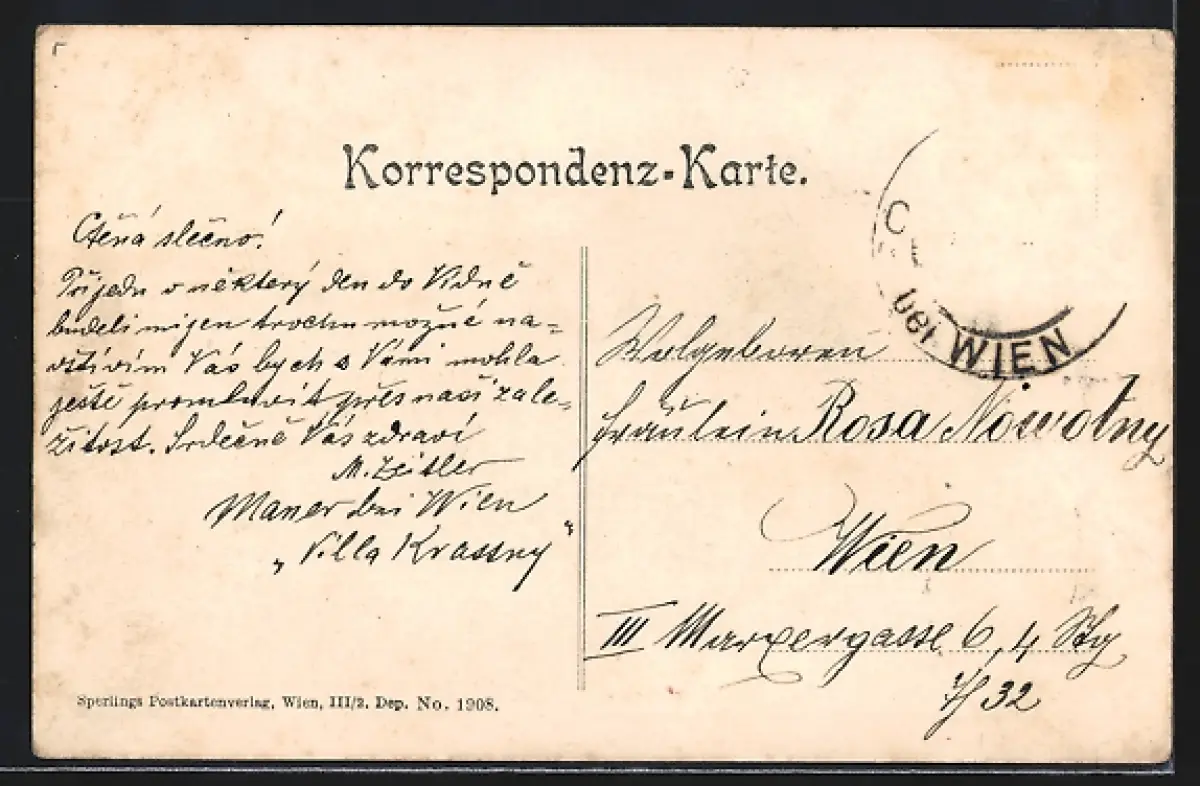 Korrespondenz-Karte.
Ctěná slečno!
Přijedu v některý den do Vídně
budeli mi jen trochu možné na-
vštívím Vás bych s Vámi mohla
ještě promluvit přes naší zále-
žitost. Srdečně Vás zdraví
M. Zeitler
Mauer bei Wien
„Villa Krassny"
bei WIEN
Wolgeboren
Fräulein Rosa Nowotny
Wien
III Marxergasse 6, 4 Stg
T/32
Sperlings Postkartenverlag, Wien, III/2. Dep. No. 1908.